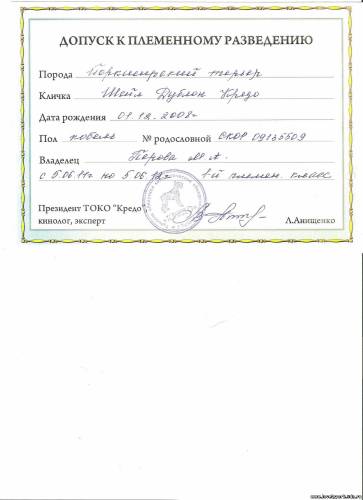 ДОПУСК К ПЛЕМЕННОМУ РАЗВЕДЕНИЮ
Порода Йоркширский терьер
Кличка Шейл Дублон Кредо
Дата рождения 01.12.2008г
Пол кобель № родословной СКОР 09135509
Владелец М.А.
с 5.06.11г по 5.06.12г 1-й племен. класс
Президент ТОКО "Кредо"
кинолог, эксперт Л.Анищенко